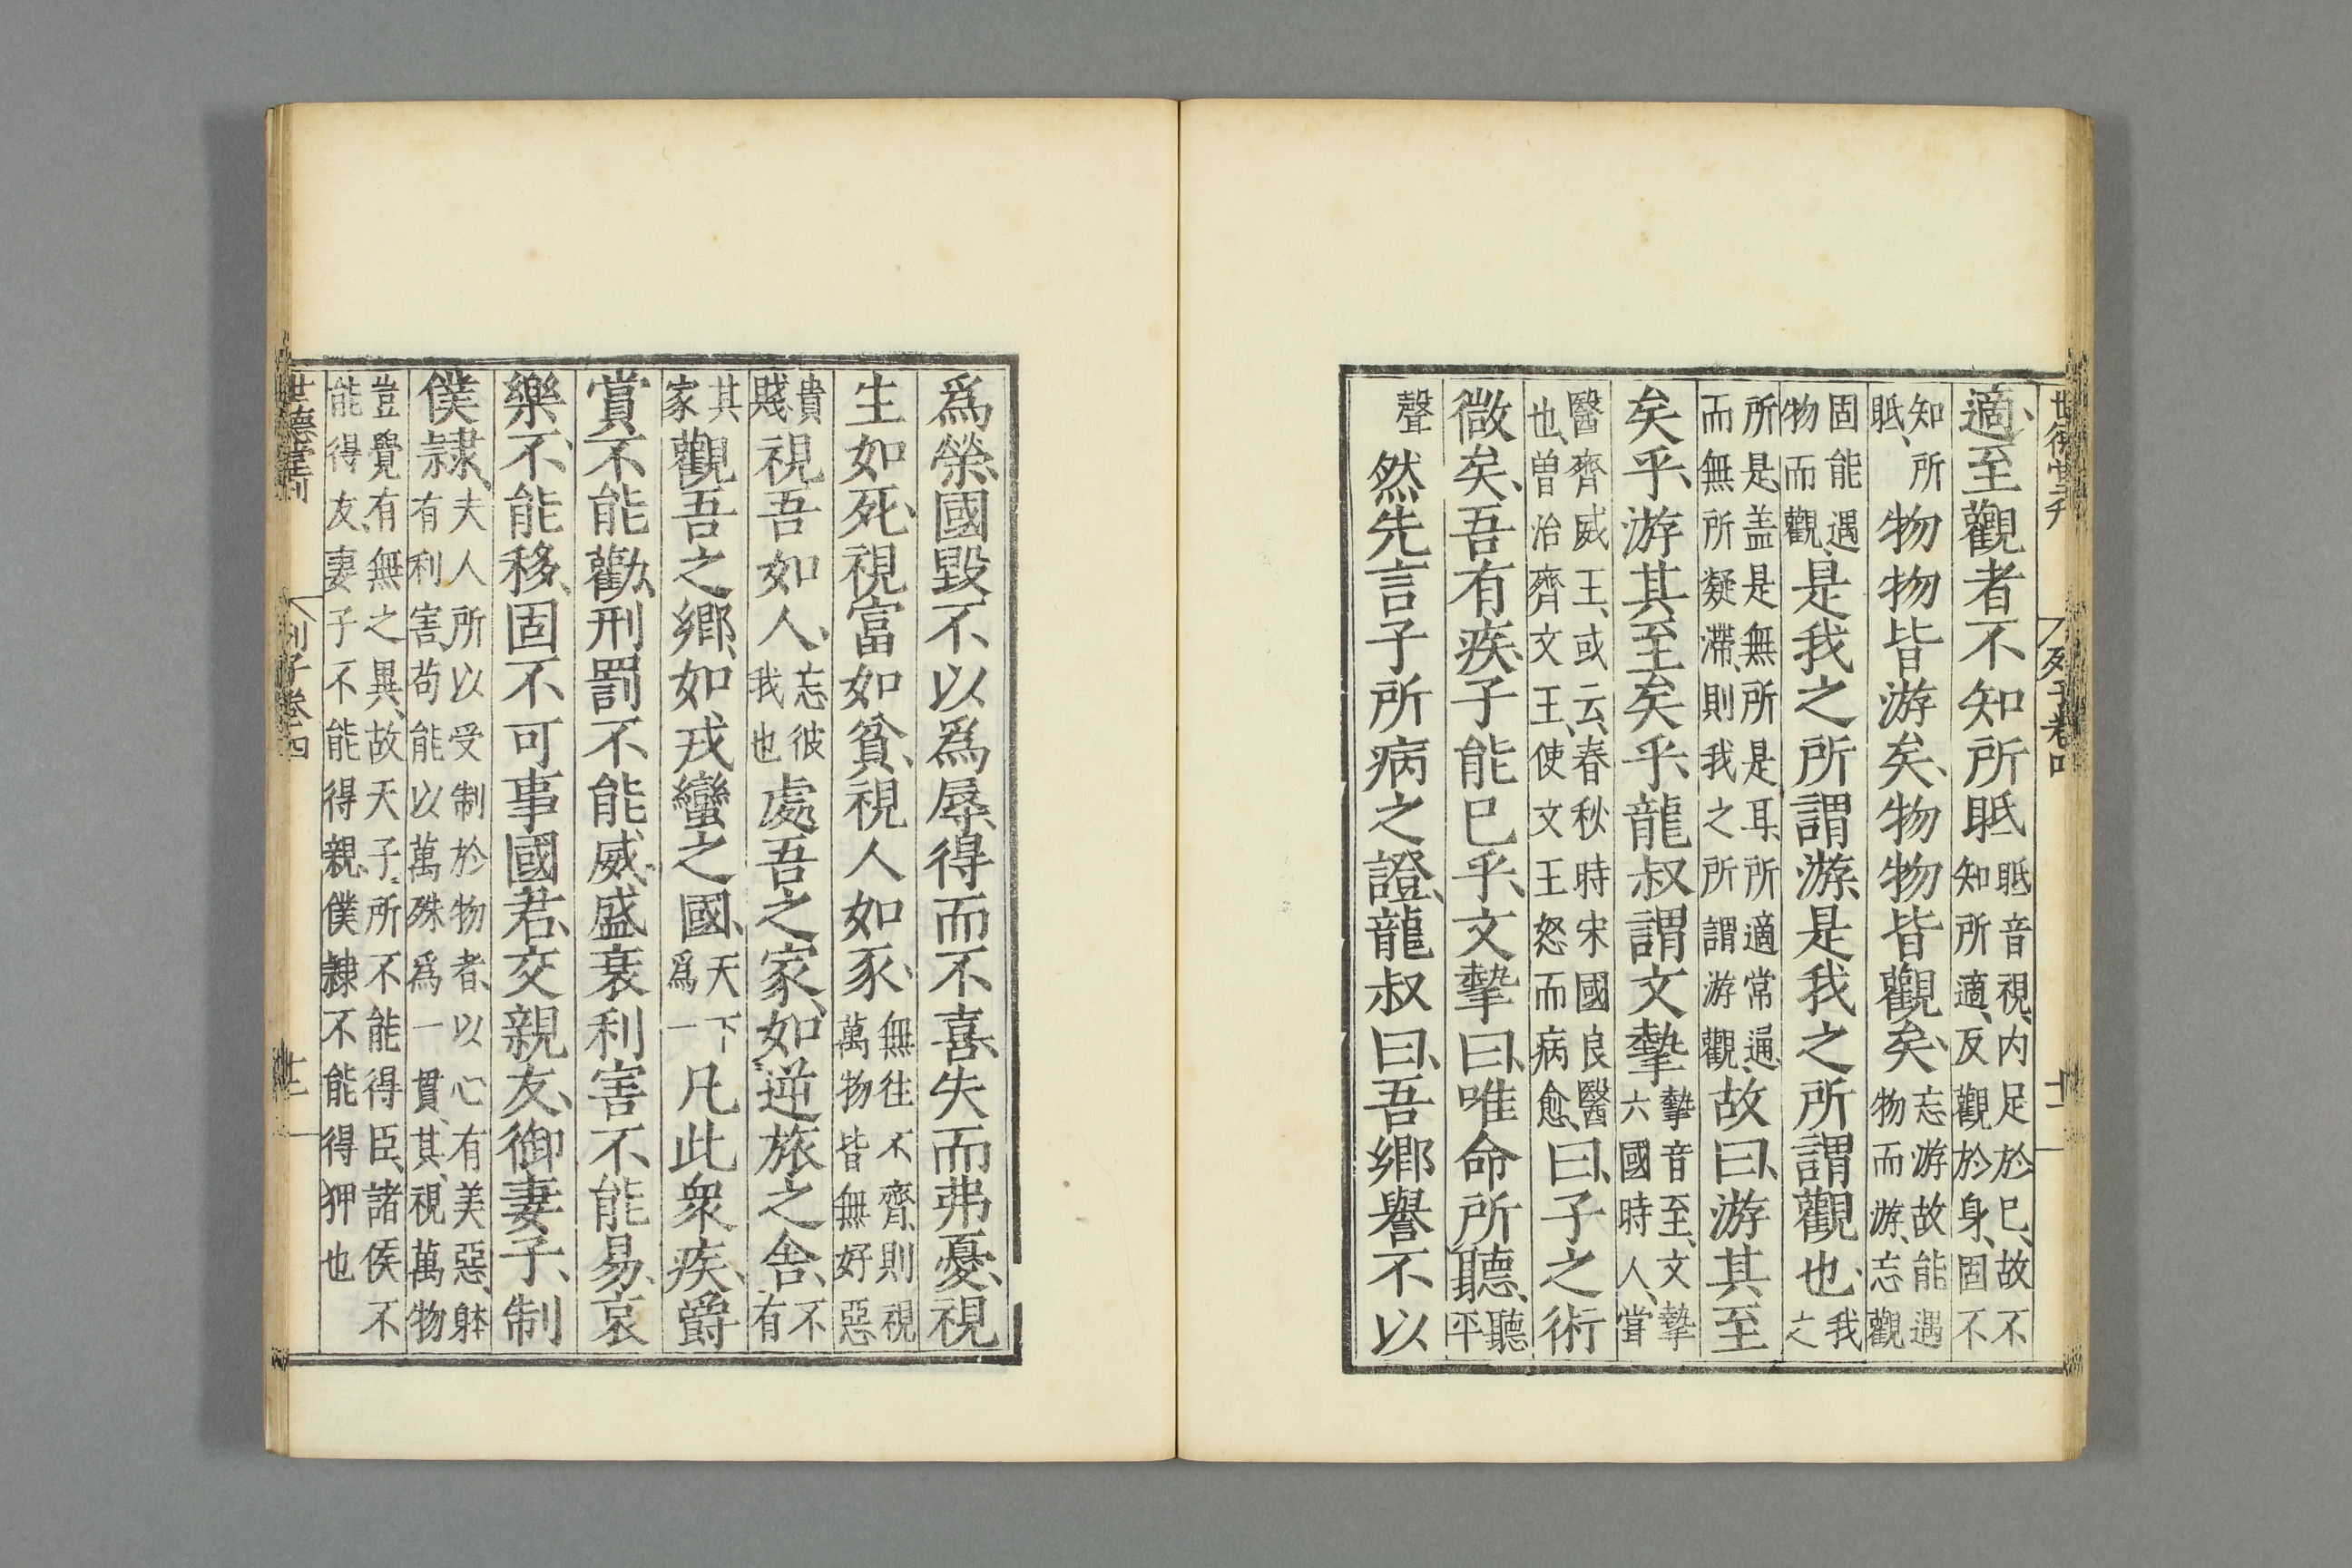 世德堂刊 列子卷四 十二
適、至觀者不知所眡眡音視、内足於已、故不知所適、反觀於身、固不
知所眡、物物皆游矣、物物皆觀矣、忘游故能遇物而游、忘觀
固能遇物而觀、是我之所謂游、是我之所謂觀也、我之
所是、盖是無所是耳、所適常通、而無所凝滯、則我之所謂游觀、故曰、游其至
矣乎、游其至矣乎、龍叔謂文摯摯音至、文摯六國時人、甞
醫齊威王、或云、春秋時宋國良醫也、曽治齊文王、使文王怒而病愈、曰、子之術
微矣、吾有疾、子能已乎、文摯曰、唯命所聽、聽平
聲然先言子所病之證、龍叔曰、吾鄉譽不以
爲榮、國毀不以爲辱、得而不喜、失而弗憂、視
生如死、視富如貧、視人如豕、無往不齊、則視萬物皆無好惡
貴賤、視吾如人、忘彼我也處吾之家、如逆旅之舍、不有
其家觀吾之鄉、如戎蠻之國、天下爲一凡此衆疾、爵
賞不能勸、刑罰不能威、盛衰利害不能易、哀
樂不能移、固不可事國君、交親友、御妻子、制
僕隷、夫人所以受制於物者、以心有美惡、躰有利害、苟能以萬殊爲一貫、其視萬物
豈覺有無之異、故天子所不能得臣、諸侯不能得友、妻子不能得親、僕隷不能得狎也
世德堂刊 列子卷四 十三